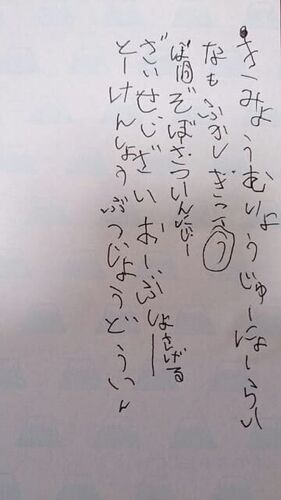 きーみょうむりょうじゅーにょーらい
なもふかしぎこう
ぞぼさついんにじー
ざいせじざいおーぶしょー
さげる
とーけんしょうぶつじょうどういん